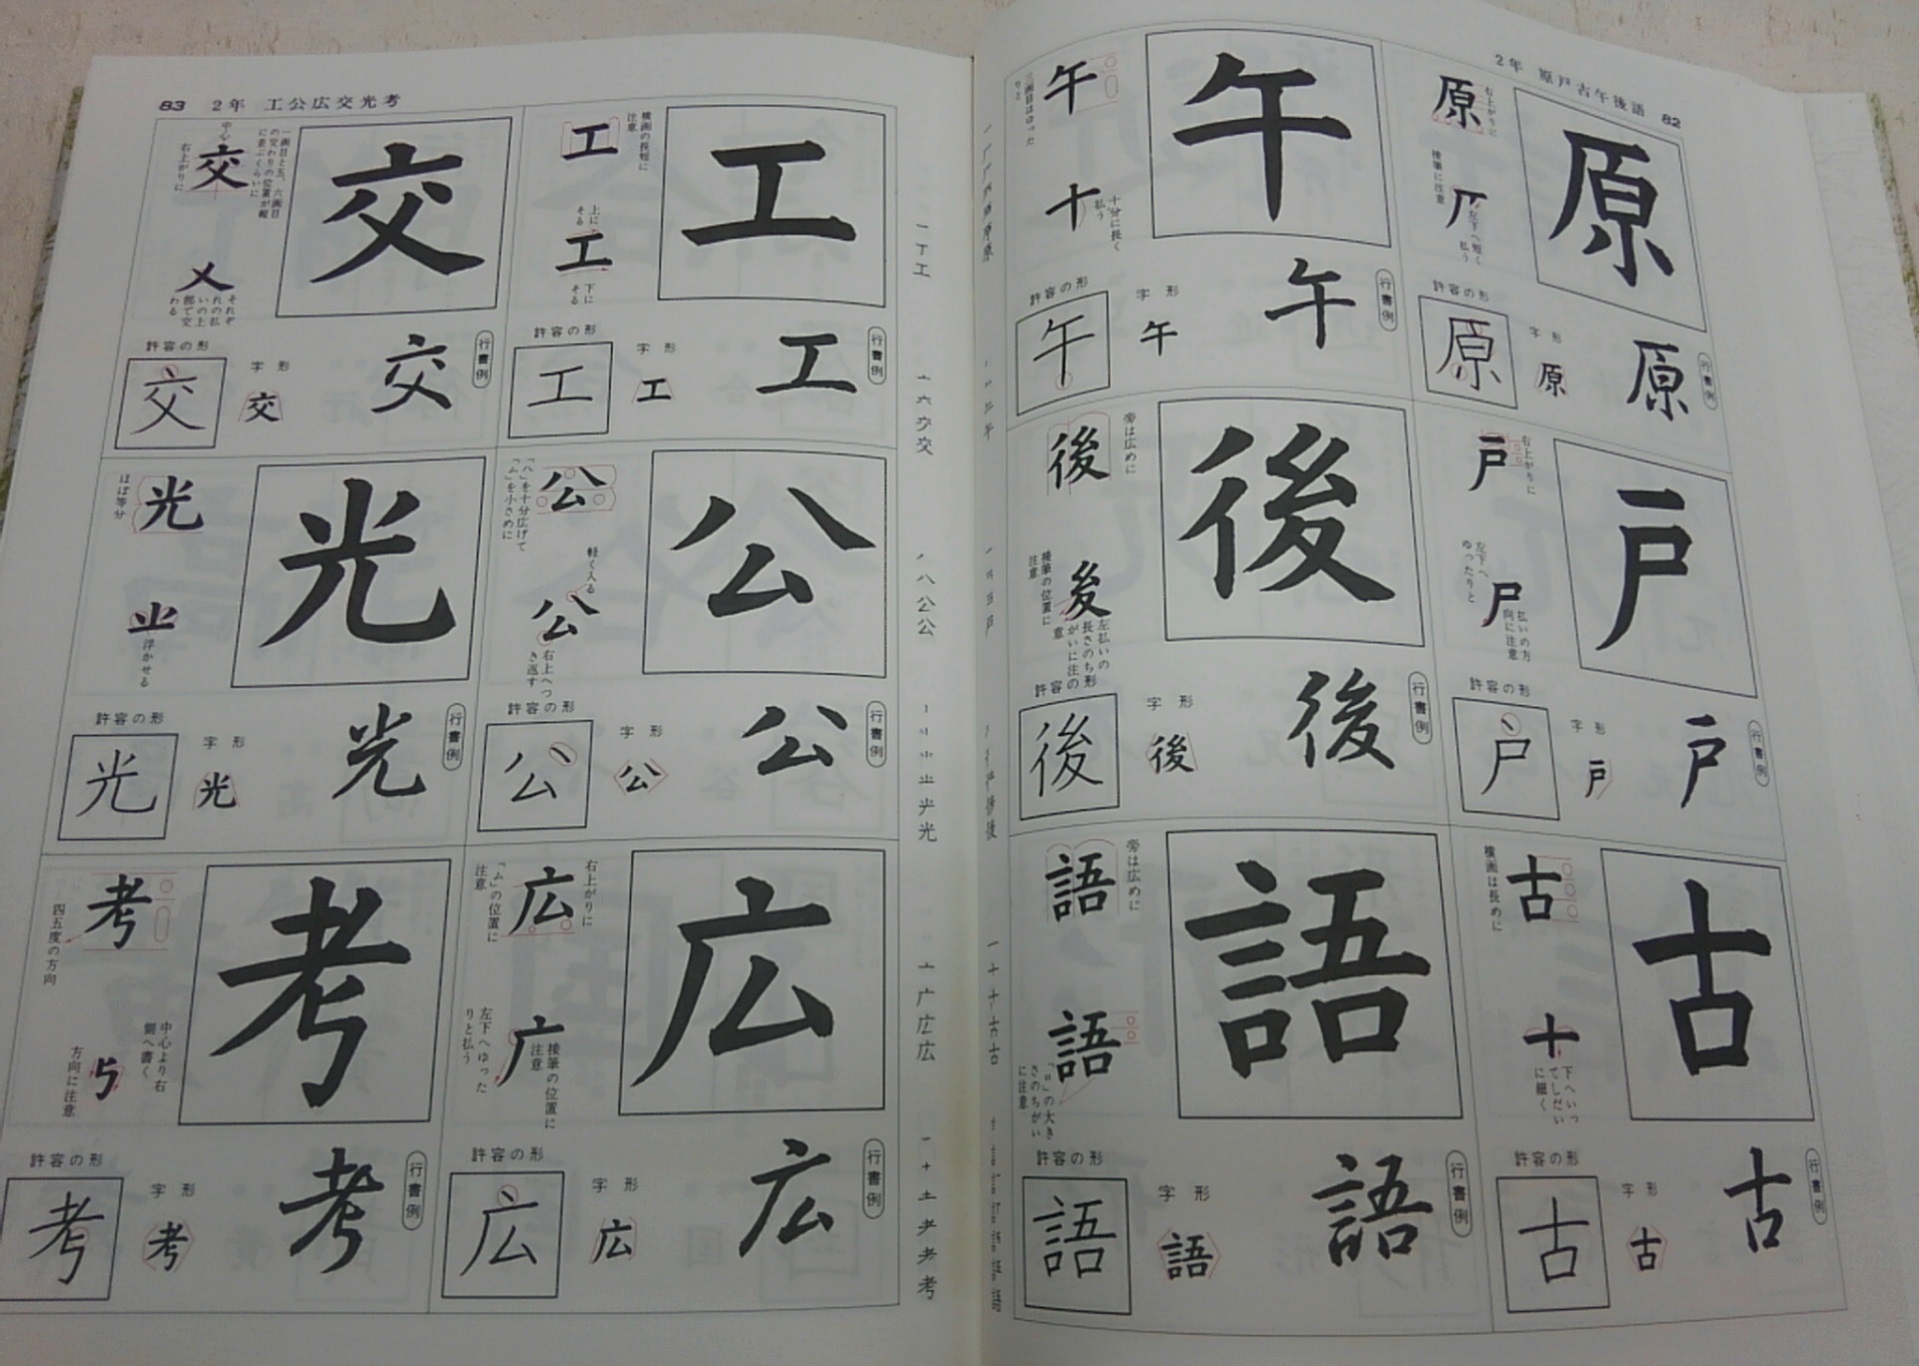 2年 原戸古午後語 82
原
原
右上がりに
接筆に注意
左下へ短く払う
許容の形
原
字形
原
原
行書例
戸
戸
右上がりに
左下へゆったりと
払いの方向に注意
許容の形
戸
字形
戸
戸
行書例
古
古
横画は長めに
十
下へいってしだいに細く
許容の形
古
字形
古
古
行書例
午
午
三画目はゆったりと
十
十分に長く払う
許容の形
午
字形
午
午
行書例
後
後
旁は広めに
接筆の位置に注意
左払いの長さのちがいに注意
許容の形
後
字形
後
後
行書例
語
語
旁は広めに
語
「口」の大きさのちがいに注意
許容の形
語
字形
語
語
行書例
83 2年 工公広交光考
工
工
横画の長短に注意
工
上にそる
下にそる
許容の形
工
字形
工
工
行書例
一丁工
公
公
「ハ」を十分広げて「ム」を小さめに
公
軽く入る
右上へつき返す
許容の形
公
字形
公
公
行書例
ノ八公公
広
広
右上がりに
「ム」の位置に注意
広
接筆の位置に注意
左下へゆったりと払う
許容の形
広
字形
広
広
行書例
亠广広広
交
交
中心
右上がりに
一画目と五、六画目の交わりの位置が縦に並ぶくらいに
メ
それぞれの払いの上部で交わる
許容の形
交
字形
交
交
行書例
亠六交交
光
光
ほぼ等分
浮かせる
許容の形
光
字形
光
光
行書例
考
考
四五度の方向
中心より右側へ書く
方向に注意
許容の形
考
字形
考
考
行書例